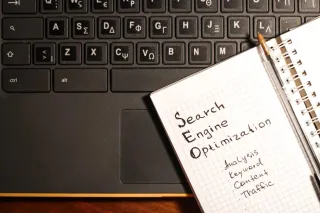 Search
Engine
Optimization
Analysis
Keyword
Content
Traffic
ctrl
alt
Z
X
C Ψ
V Ω
B
N
M